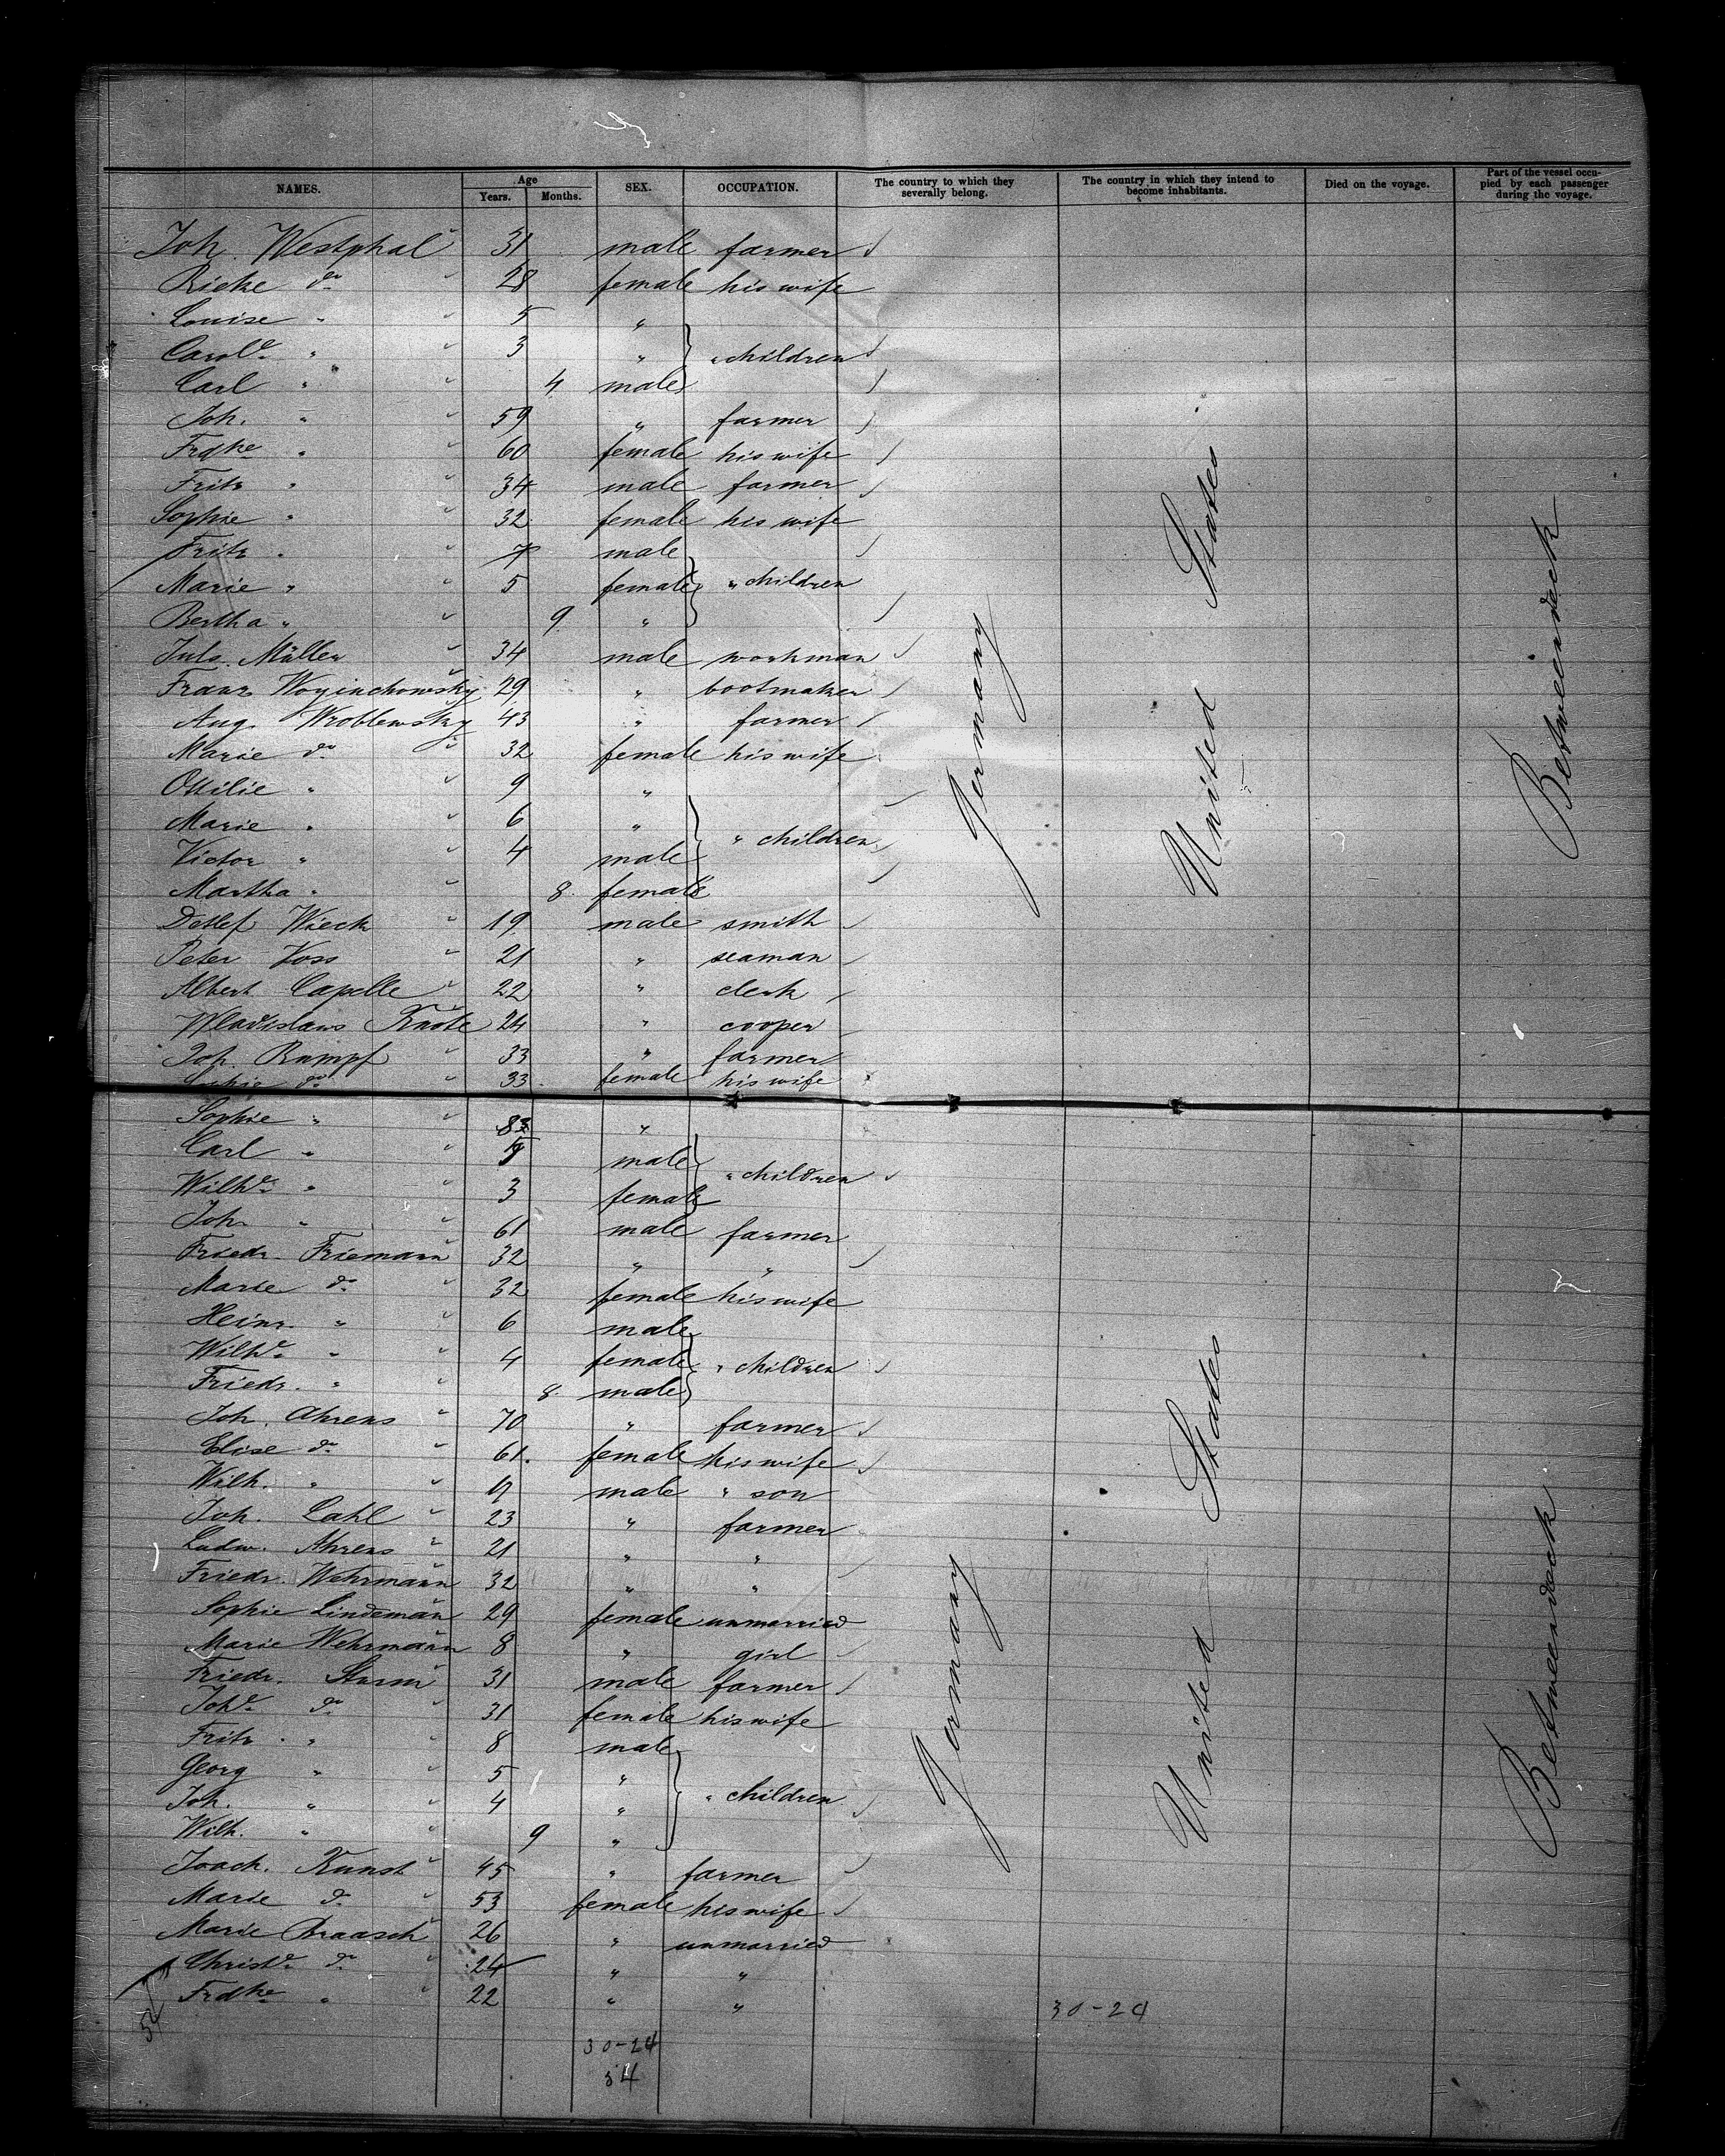 NAMES. Age Years. Months. SEX. OCCUPATION. The country to which they severally belong. The country in which they intend to become inhabitants. Died on the voyage. Part of the vessel occupied by each passenger during the voyage.
Joh. Westphal 31 male farmer
Rieke do 28 female his wife
Louise " 5 "
Carole " 3 " " children
Carl " 4 male
Joh. " 59 " farmer
Frdke " 60 female his wife
Fritz " 34 male farmer
Sophie " 32 female his wife
Fritz " 7 male
Marie " 5 female " children
Bertha " 9 "
Juls. Müller 34 male workman
Franz Woyinchowsky 29 " bootmaker
Aug. Wroblewsky 43 " farmer
Marie do 32 female his wife
Ottilie " 9 "
Marie " 6 "
Victor " 4 male " children
Martha " 8 female
Detlef Wieck 19 male smith
Peter Voss 21 " seaman
Albert Capelle 22 " clerk
Wladislaus Knote 24 " cooper
Joh. Rumpf 33 " farmer
Sophie do 33 female his wife
Sophie " "
Carl " male
Wilhe " 3 female " children
Joh. " 61 male farmer
Friedr. Friemann 32 " "
Marie do 32 female his wife
Heinr. " 6 male
Wilhe " 4 female " children
Friedr. " 8 male
Joh. Ahrens 70 " farmer
Elise do 61 female his wife
Wilh. " 9 male " son
Joh. Lahl 23 " farmer
Ludw. Ahrens 21 " "
Friedr. Wehrmann 32 " "
Sophie Lindeman 29 female unmarried
Marie Wehrmann 8 " girl
Friedr. Sturm 31 male farmer
Johe do 31 female his wife
Fritz " 8 male
Georg " 5 "
Joh. " 4 " " children
Wilh. " 9 "
Joach. Kunst 45 " farmer
Marie do 53 female his wife
Marie Braasch 26 " unmarried
Christe do 24 " "
Frdke " 22 " "
Germany
United States
Betweendeck
Germany
United States
Betweendeck
30-24
30-24
54
54